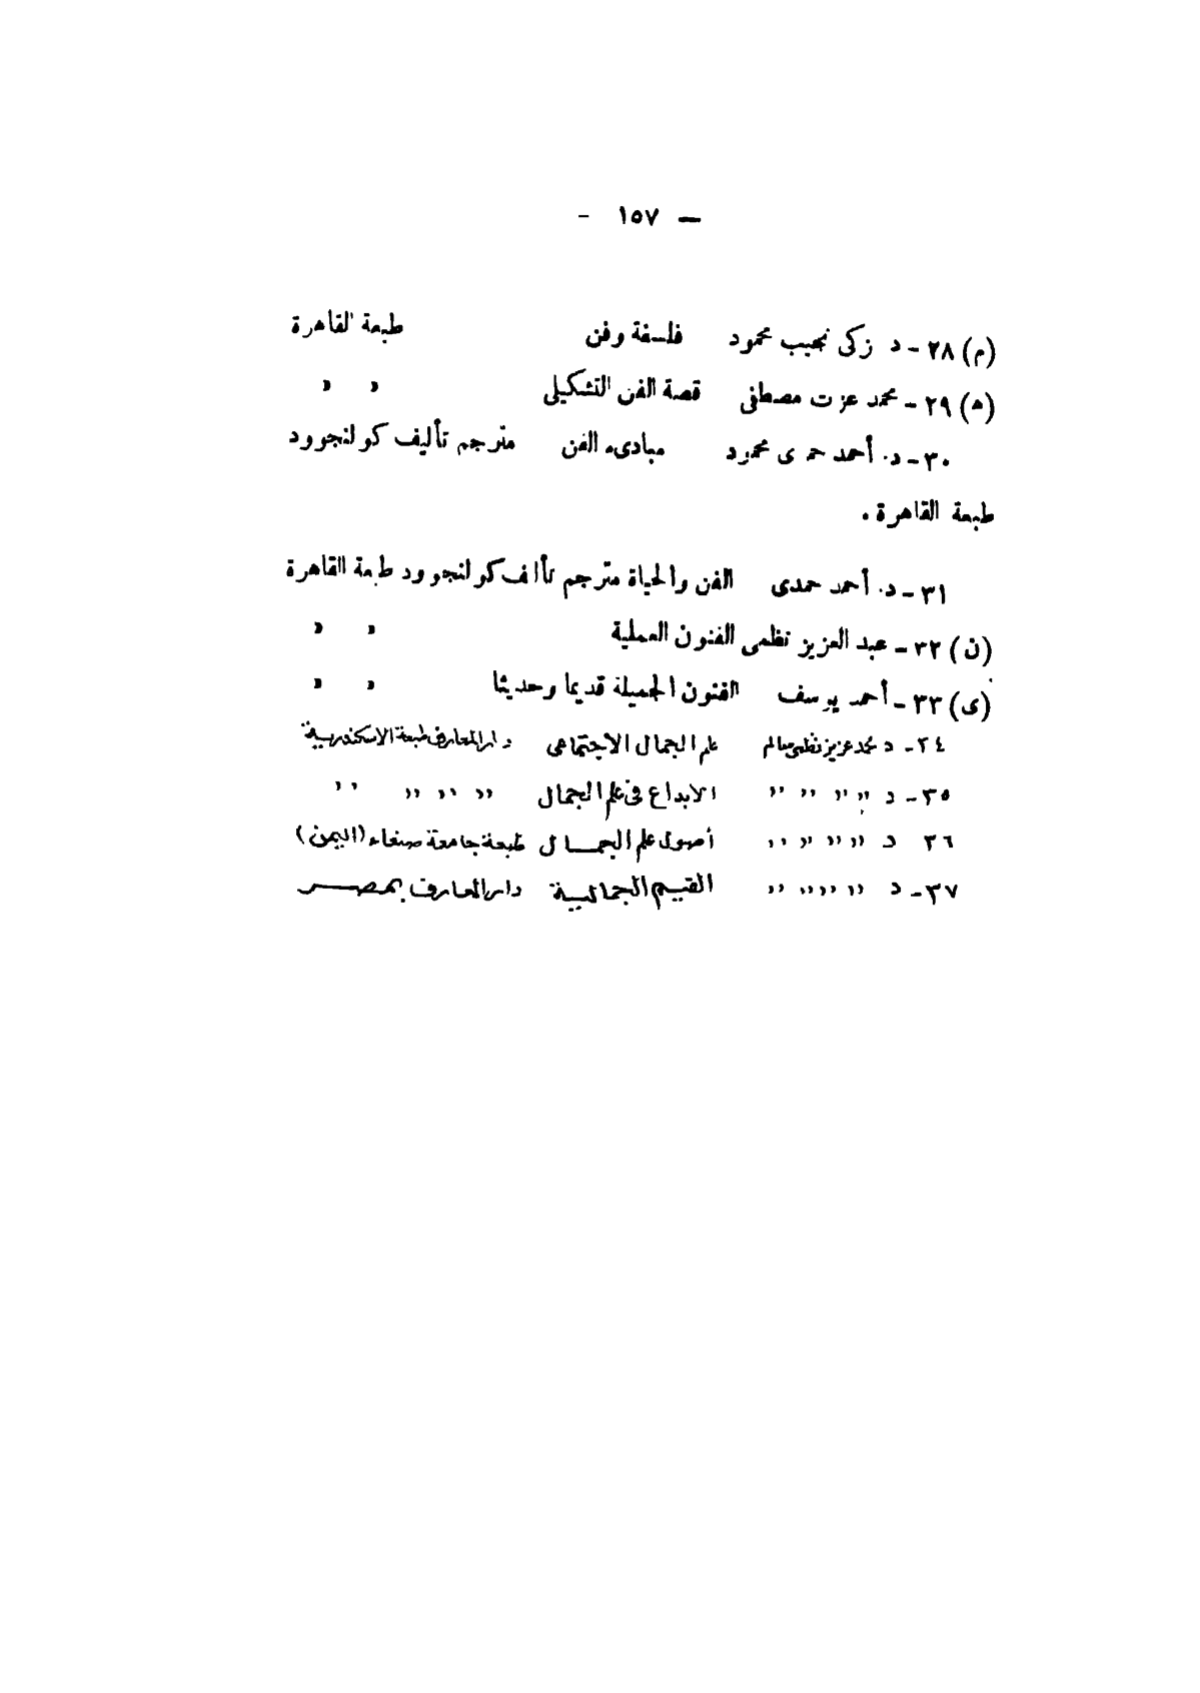 — ١٥٧ -
(م) ٢٨ - د زكى نجيب محمود فلسفة وفن طبعة القاهرة
(ه) ٢٩ - محمد عزت مصطفى قصة الفن التشكيلى » »
٣٠ - د. أحمد حمدى محمود مبادىء الفن مترجم تأليف كولنجوود
طبعة القاهرة .
٣١ - د. أحمد حمدى الفن والحياة مترجم تأليف كولنجوود طبعة القاهرة
(ن) ٣٢ - عبد العزيز نظمى الفنون العملية » »
(ى) ٣٣ - أحمد يوسف الفنون الجميلة قديما وحديثا » »
٣٤ - د محمد عزيز نظمى سالم علم الجمال الاجتماعى دار المعارف طبعة الاسكندرية
٣٥ - د ,, ,, ,, ,, الابداع فى علم الجمال ,, ,, ,, ,,
٣٦ د ,, ,, ,, ,, أصول علم الجمال طبعة جامعة صنعاء (اليمن)
٣٧ - د ,, ,, ,, ,, القيم الجمالية دار المعارف بمصر